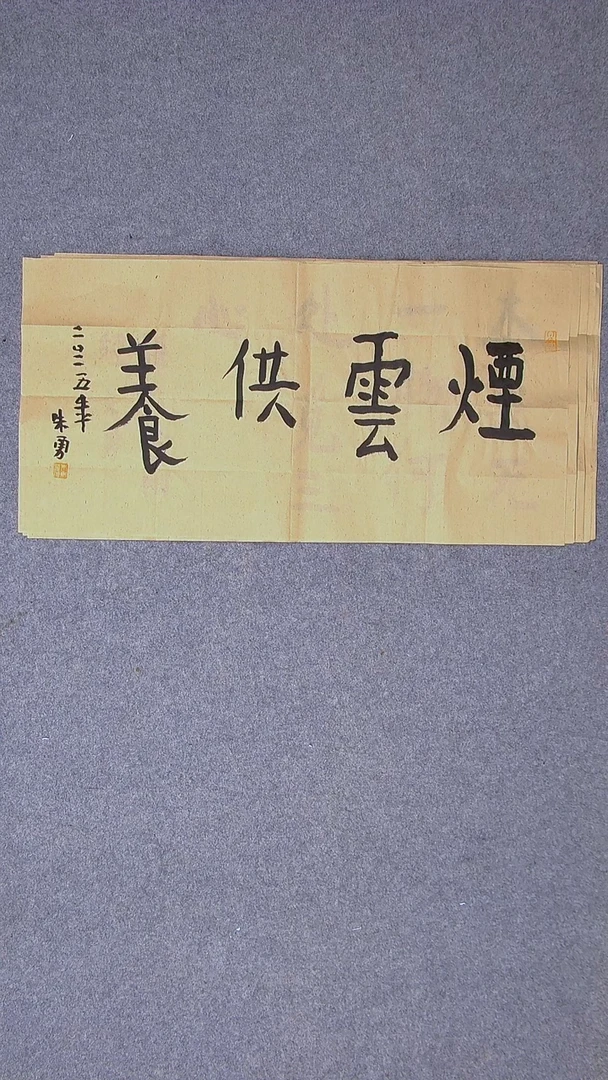 煙雲供養
二〇二五年
朱勇